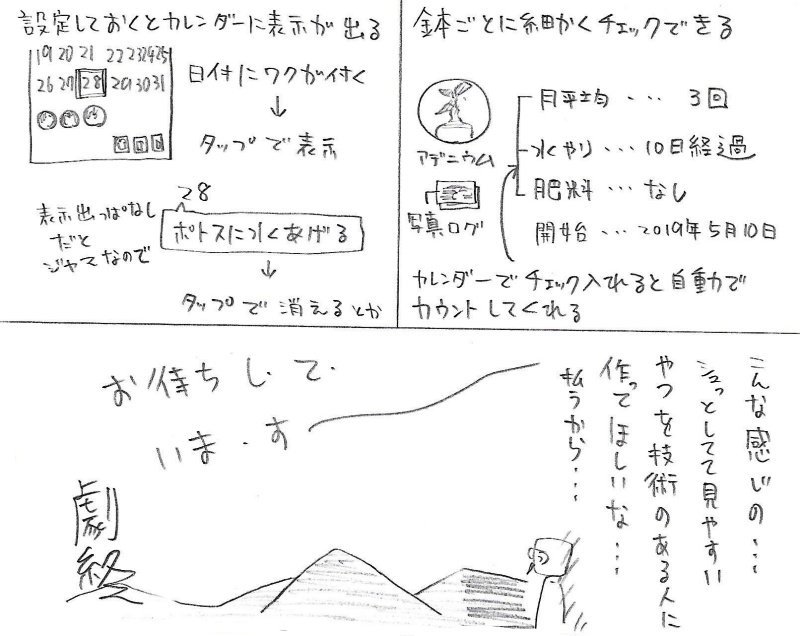 設定しておくとカレンダーに表示が出る
19 20 21 22 23 24 25
26 27 28 29 30 31
日付にワクが付く
↓
タップで表示
28
ポトスに水あげる
表示出っぱなし
だと
ジャマなので
↓
タップで消えるとか
鉢ごとに細かくチェックできる
アデニウム
写真ログ
月平均・・・3回
水やり・・・10日経過
肥料・・・なし
開始・・・2019年5月10日
カレンダーでチェック入れると自動で
カウントしてくれる
こんな感じの・・・
シュっとしてて見やすい
やつを技術のある人に
作ってほしいな・・・
払うから・・・
お待ちし・て・
いま・す
劇終